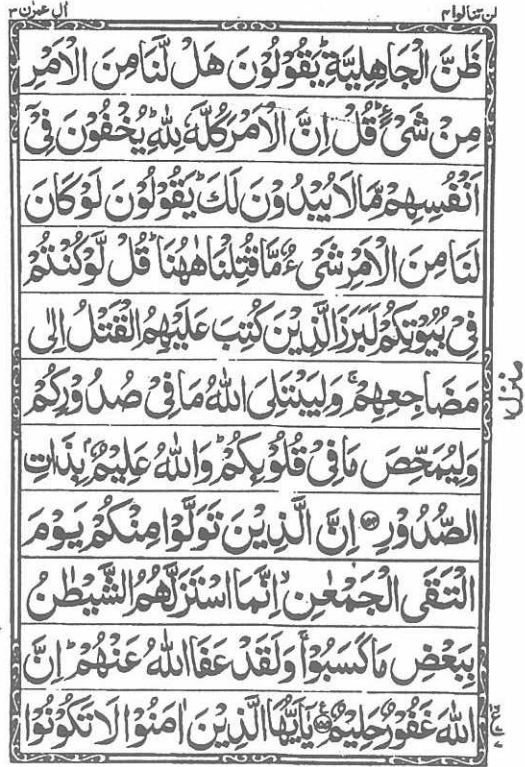 لن تنالوا ۴
اٰل عمرٰن ۳
ظَنَّ الْجَاهِلِيَّةِ ؕ يَقُوْلُوْنَ هَلْ لَّنَا مِنَ الْاَمْرِ
مِنْ شَيْءٍ ؕ قُلْ اِنَّ الْاَمْرَ كُلَّهٗ لِلّٰهِ ؕ يُخْفُوْنَ فِيْۤ
اَنْفُسِهِمْ مَّا لَا يُبْدُوْنَ لَكَ ؕ يَقُوْلُوْنَ لَوْ كَانَ
لَنَا مِنَ الْاَمْرِ شَيْءٌ مَّا قُتِلْنَا هٰهُنَا ؕ قُلْ لَّوْ كُنْتُمْ
فِيْ بُيُوْتِكُمْ لَبَرَزَ الَّذِيْنَ كُتِبَ عَلَيْهِمُ الْقَتْلُ اِلٰى
مَضَاجِعِهِمْ ۚ وَلِيَبْتَلِيَ اللّٰهُ مَا فِيْ صُدُوْرِكُمْ
وَلِيُمَحِّصَ مَا فِيْ قُلُوْبِكُمْ ؕ وَاللّٰهُ عَلِيْمٌۢ بِذَاتِ
الصُّدُوْرِ ۝۱۵۴ اِنَّ الَّذِيْنَ تَوَلَّوْا مِنْكُمْ يَوْمَ
الْتَقَى الْجَمْعٰنِ ۙ اِنَّمَا اسْتَزَلَّهُمُ الشَّيْطٰنُ
بِبَعْضِ مَا كَسَبُوْا ۚ وَلَقَدْ عَفَا اللّٰهُ عَنْهُمْ ؕ اِنَّ
اللّٰهَ غَفُوْرٌ حَلِيْمٌ ۝۱۵۵ يٰۤاَيُّهَا الَّذِيْنَ اٰمَنُوْا لَا تَكُوْنُوْا
منزل ۱